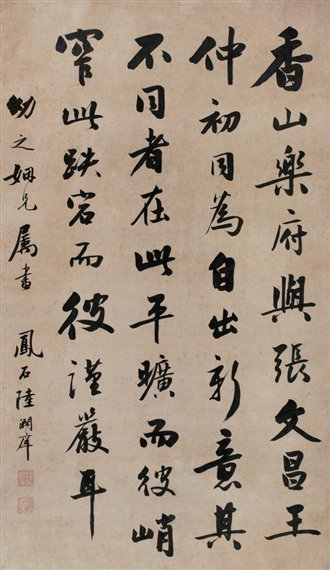 香山樂府與張文昌王
仲初同為自出新意其
不同者在此平曠而彼峭
窄此跌宕而彼謹嚴耳
幼之姻兄屬書
鳳石陸潤庠